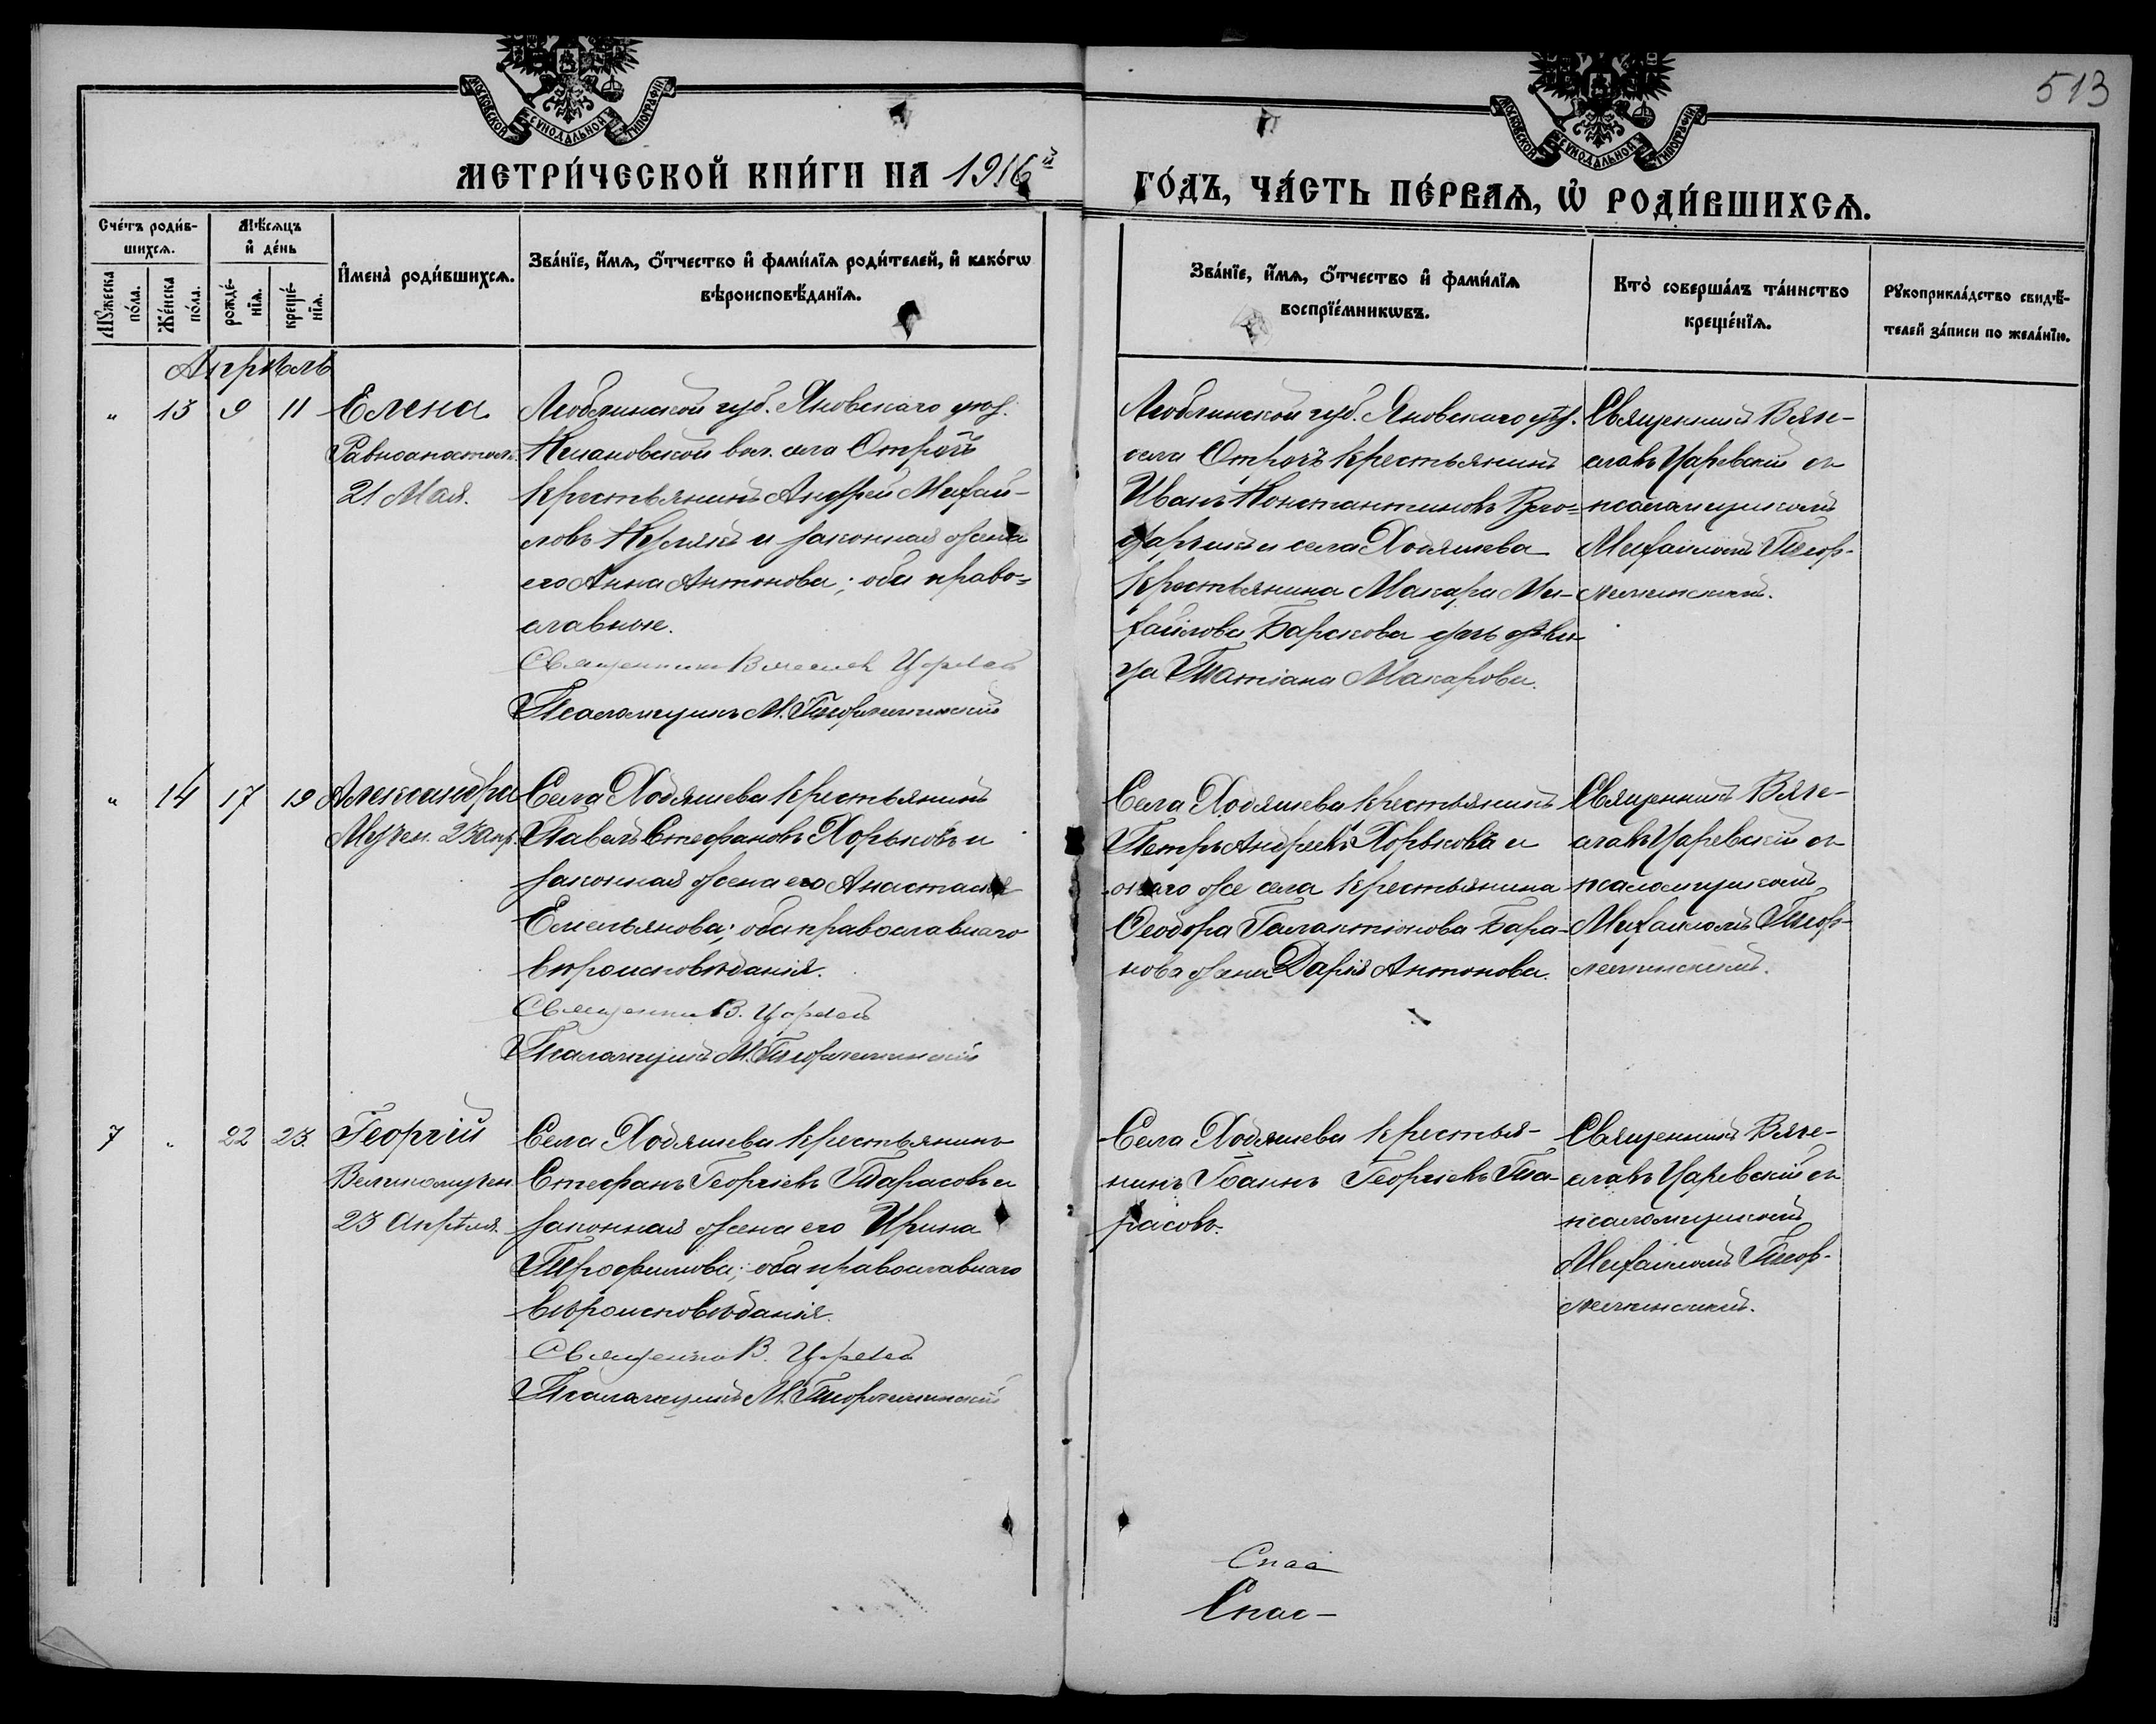 513
МОСКОВСКОЙ СѴНОДАЛЬНОЙ ТИПОГРАФІИ
МОСКОВСКОЙ СѴНОДАЛЬНОЙ ТИПОГРАФІИ
МЕТРИ́ЧЕСКОЙ КНИ́ГИ НА 1916й
ГО́ДЪ, ЧА́СТЬ ПЕ́РВАѦ, Ѡ҆ РОДИ́ВШИХСѦ.
Сче́тъ роди́в-
шихсѧ.
Мѣ́сѧцъ
и҆ де́нь
Мꙋ́жеска по́ла.
Же́нска по́ла.
рожде́-
нїѧ.
креще́-
нїѧ.
И҆мена̀ роди́вшихсѧ.
Зва́нїе, и҆́мѧ, ѻ҆́тчество и҆ фамі́лїѧ роди́телей, и҆ како́гѡ
вѣроисповѣ́данїѧ.
Зва́нїе, и҆́мѧ, ѻ҆́тчество и҆ фамі́лїѧ
воспрїе́мникѡвъ.
Кто̀ соверша́лъ та́инство
креще́нїѧ.
Рꙋкоприкла́дство свидѣ́-
телей за́писи по жела́нїю.
Апрѣль
" 13 9 11 Елена
Равноапостол.
21 Мая.
Люблинской губ. Яновскаго уѣз.
вол. села Отрочъ
крестьянинъ Андрей Михай-
ловъ и законная жена
его Анна Антонова; оба право-
славные.
Священникъ Вячеслав Царевскій
Псаломщикъ М.
Люблинской губ. Яновскаго уѣз.
села Отрочъ крестьянинъ
Иванъ Константиновъ
и села Ходяшева
крестьянина Макара Ми-
хайлова Баракова дочь дѣви-
ца Татіана Макарова.
Священникъ Вяче-
славъ Царевскій съ
псаломщикомъ
Михаиломъ
" 14 17 19 Александра
Мучен. 23 апр.
Села Ходяшева крестьянинъ
Павелъ Стефановъ Хорьковъ и
законная жена его Анастасія
Емельянова; оба православнаго
вѣроисповѣданія.
Священникъ В. Царевскій
Псаломщикъ М.
Села Ходяшева крестьянинъ
Петръ Андреевъ Хорьковъ и
онаго же села крестьянина
Ѳеодора Галактіонова Бара-
кова жена Дарія Антонова.
Священникъ Вяче-
славъ Царевскій съ
псаломщикомъ
Михаиломъ
7 " 22 23. Георгій
Великомучен.
23 Апрѣля.
Села Ходяшева крестьянинъ
Стефанъ Георгіевъ Тарасовъ и
законная жена его Ирина
Трофимова; оба православнаго
вѣроисповѣданія.
Священникъ В. Царевскій
Псаломщикъ М.
Села Ходяшева крестья-
нинъ Іоаннъ Георгіевъ Та-
расовъ.
Священникъ Вяче-
славъ Царевскій съ
псаломщикомъ
Михаиломъ
Спас
Спас-